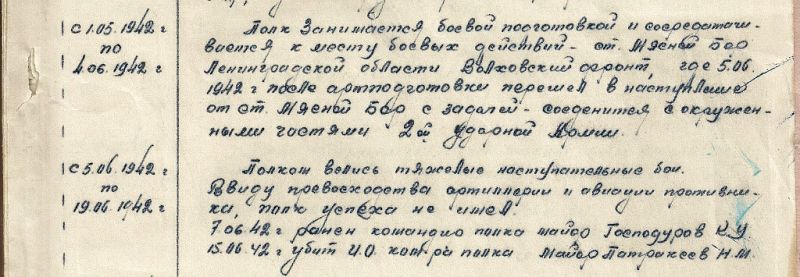 с 1.05.1942 г
по
4.06.1942 г
Полк Занимается боевой подготовкой и сосредотачи-
вается к месту боевых действий - ст. Мясной Бор
Ленинградской области Волховский фронт, где 5.06.
1942 г после артподготовки перешел в наступление
от ст. Мясной Бор с задачей - соеденится с окружен-
ными частями 2й ударной Армии.
с 5.06.1942 г
по
19.06.1942 г
Полком велись тяжелые наступательные бои.
Ввиду превосходства артиллерии и авиации противни-
ка, полк успеха не имел.
7.06.42 г ранен командир полка майор Господуров К.У.
15.06.42 г убит И.О. ком-ра полка Майор Патракеев Н.М.